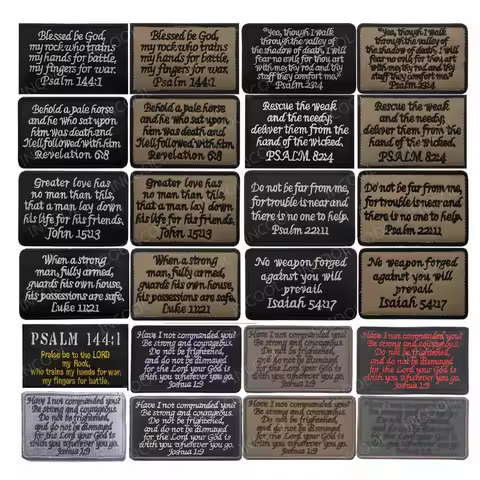 Blessed be God,
my rock who trains
my hands for battle,
my fingers for war.
Psalm 144:1
Blessed be God,
my rock who trains
my hands for battle,
my fingers for war.
Psalm 144:1
"Yea, though I walk
through the valley of
the shadow of death, I will
fear no evil for thou art
with me; thy rod and thy
staff they comfort me."
Psalm 23:4
"Yea, though I walk
through the valley of
the shadow of death, I will
fear no evil for thou art
with me; thy rod and thy
staff they comfort me."
Psalm 23:4
Behold a pale horse
and he who sat upon
him was death and
Hell followed with him
Revelation 6:8
Behold a pale horse
and he who sat upon
him was death and
Hell followed with him
Revelation 6:8
Rescue the weak
and the needy;
deliver them from the
hand of the wicked.
PSALM 82:4
Rescue the weak
and the needy;
deliver them from the
hand of the wicked.
PSALM 82:4
Greater love has
no man than this,
that a man lay down
his life for his friends.
John 15:13
Greater love has
no man than this,
that a man lay down
his life for his friends.
John 15:13
Do not be far from me,
for trouble is near and
there is no one to help.
Psalm 22:11
Do not be far from me,
for trouble is near and
there is no one to help.
Psalm 22:11
When a strong
man, fully armed,
guards his own house,
his possessions are safe.
Luke 11:21
When a strong
man, fully armed,
guards his own house,
his possessions are safe.
Luke 11:21
No weapon forged
against you will
prevail
Isaiah 54:17
No weapon forged
against you will
prevail
Isaiah 54:17
PSALM 144:1
Praise be to the LORD
my Rock,
who trains my hands for war,
my fingers for battle.
Have I not commanded you?
Be strong and courageous.
Do not be frightened,
and do not be dismayed
for the Lord your God is
with you wherever you go.
Joshua 1:9
Have I not commanded you?
Be strong and courageous.
Do not be frightened,
and do not be dismayed
for the Lord your God is
with you wherever you go.
Joshua 1:9
Have I not commanded you?
Be strong and courageous.
Do not be frightened,
and do not be dismayed
for the Lord your God is
with you wherever you go.
Joshua 1:9
Have I not commanded you?
Be strong and courageous.
Do not be frightened,
and do not be dismayed
for the Lord your God is
with you wherever you go.
Joshua 1:9
Have I not commanded you?
Be strong and courageous.
Do not be frightened,
and do not be dismayed
for the Lord your God is
with you wherever you go.
Joshua 1:9
Have I not commanded you?
Be strong and courageous.
Do not be frightened,
and do not be dismayed
for the Lord your God is
with you wherever you go.
Joshua 1:9